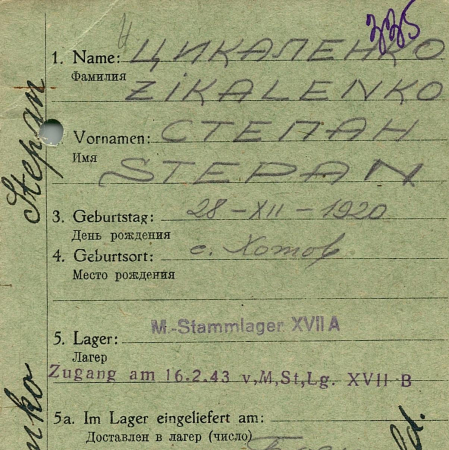 335
1. Name: ЦИКАЛЕНКО
Фамилия
ZIKALENKO
Vornamen: СТЕПАН
Имя
STEPAN
3. Geburtstag: 28-XII-1920
День рождения
4. Geburtsort: с. Хотов
Место рождения
M.-Stammlager XVII A
5. Lager:
Лагер
Zugang am 16.2.43 v,M,St,Lg. XVII B
5a. Im Lager eingeliefert am:
Доставлен в лагер (число)
Stepan